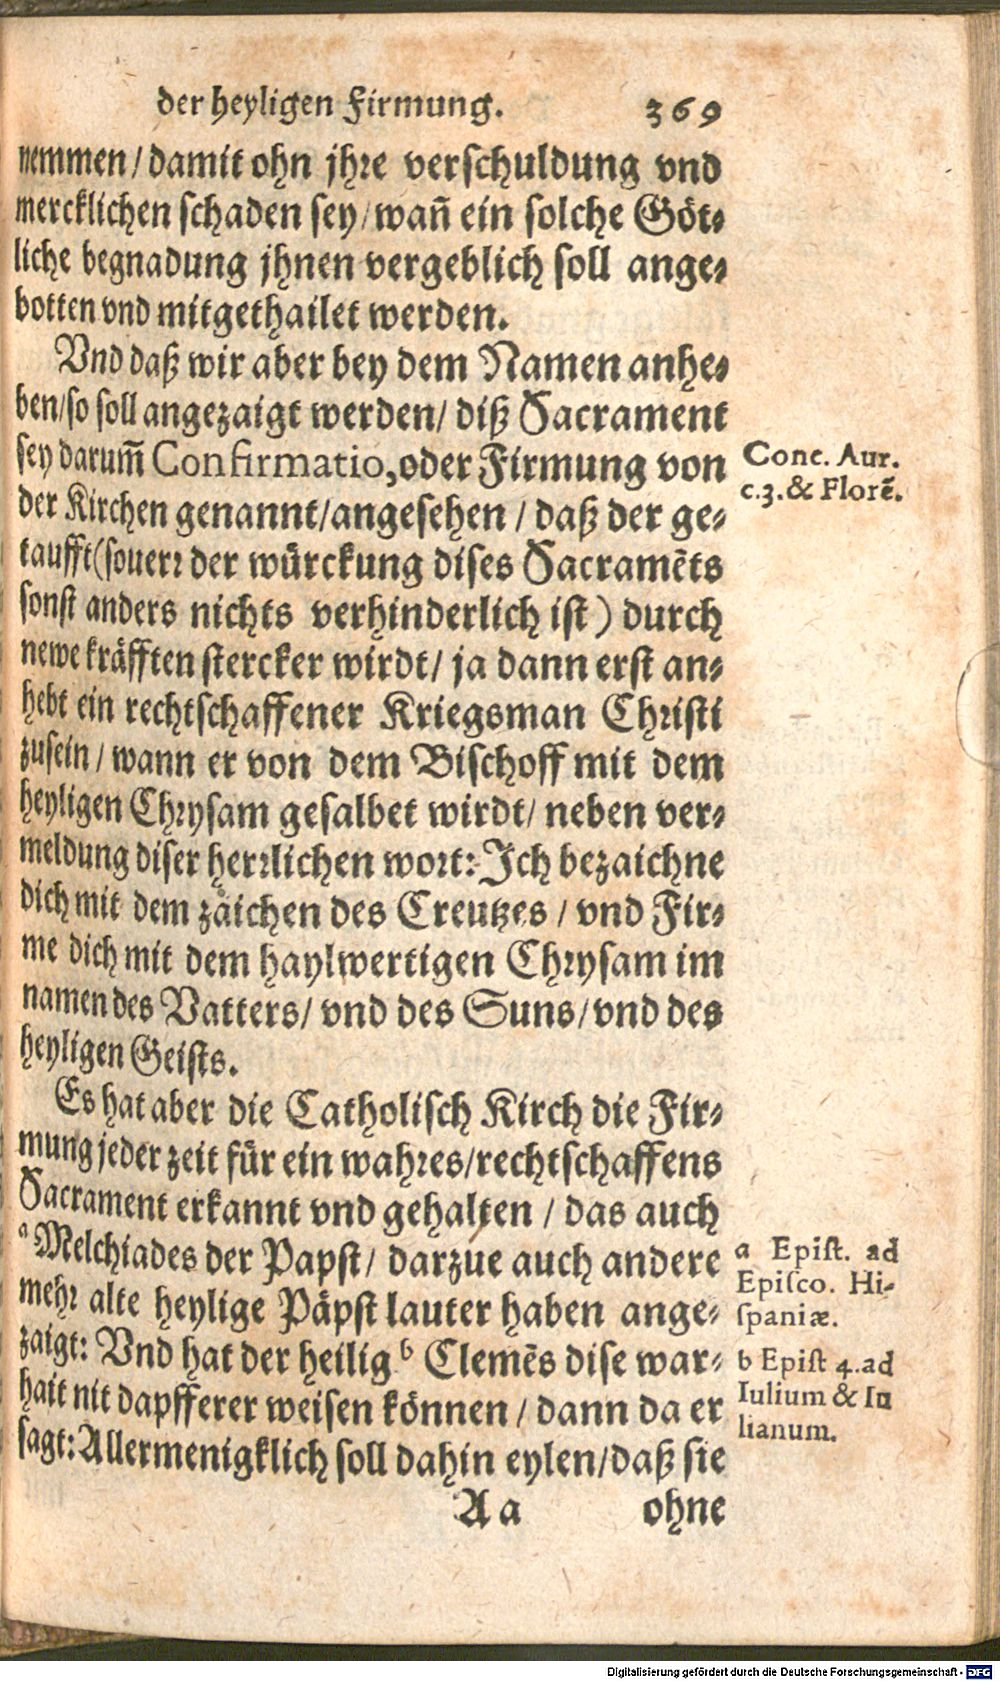 der heyligen Firmung. 369
nemmen/damit ohn jhre verschuldung vnd
mercklichen schaden sey/wañ ein solche Göt-
liche begnadung jhnen vergeblich soll ange-
botten vnd mitgethailet werden.
Vnd daß wir aber bey dem Namen anhe-
ben/so soll angezaigt werden/ diß Sacrament
sey darum̃ Confirmatio, oder Firmung von
der Kirchen genannt/angesehen / daß der ge-
taufft(souerr der würckung dises Sacramēts
sonst anders nichts verhinderlich ist) durch
newe kräfften stercker wirdt/ ja dann erst an-
hebt ein rechtschaffener Kriegsman Christi
zusein/ wann er von dem Bischoff mit dem
heyligen Chrysam gesalbet wirdt/ neben ver-
meldung diser herrlichen wort: Ich bezaichne
dich mit dem zäichen des Creutzes / vnd Fir-
me dich mit dem haylwertigen Chrysam im
namen des Vatters/ vnd des Suns/vnd des
heyligen Geists.
Es hat aber die Catholisch Kirch die Fir-
mung jeder zeit für ein wahres/rechtschaffens
Sacrament erkannt vnd gehalten / das auch
a Melchiades der Papst/ darzue auch andere
mehr alte heylige Päpst lauter haben ange-
zaigt: Vnd hat der heilig b Clemēs dise war-
hait nit dapfferer weisen können/ dann da er
sagt: Allermenigklich soll dahin eylen/daß sie
Aa ohne
Conc. Aur.
c.3.& Florẽ.
a Epist. ad
Episco. Hi-
spaniæ.
b Epist 4.ad
Iulium & Iu
lianum.
Digitalisierung gefördert durch die Deutsche Forschungsgemeinschaft - DFG